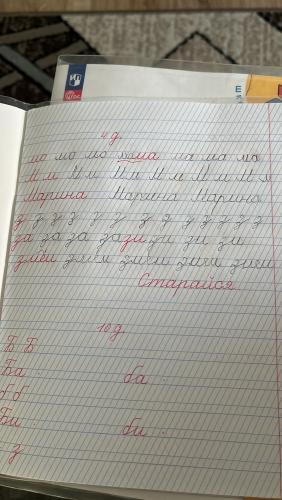 4 д.
ма ма ма ма ма ма ма ма
М м М м М м М м М м М м
Марина Марина Марина
з з з з з з з з з з з з з
за за за за зи зи зи зи
змеи змеи змеи змеи змеи
Старайся
10 д.
Б Б
Ба ба
б б
Би би
з